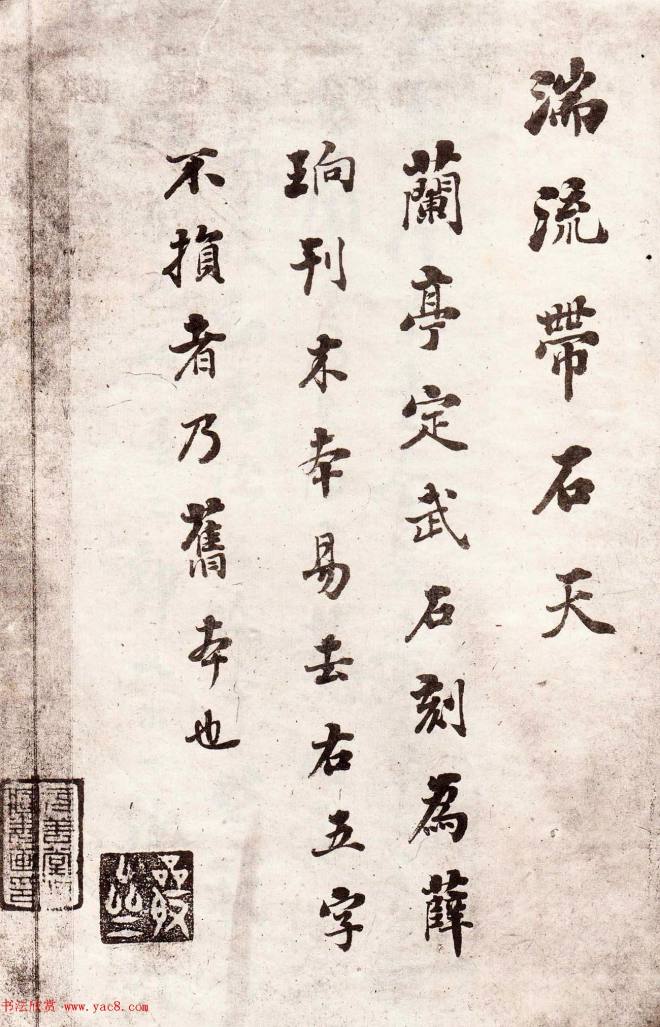 湍流帶石天
蘭亭定武石刻為薛
珦刊木本易去右五字
不損者乃舊本也
书法欣赏 www.yac8.com